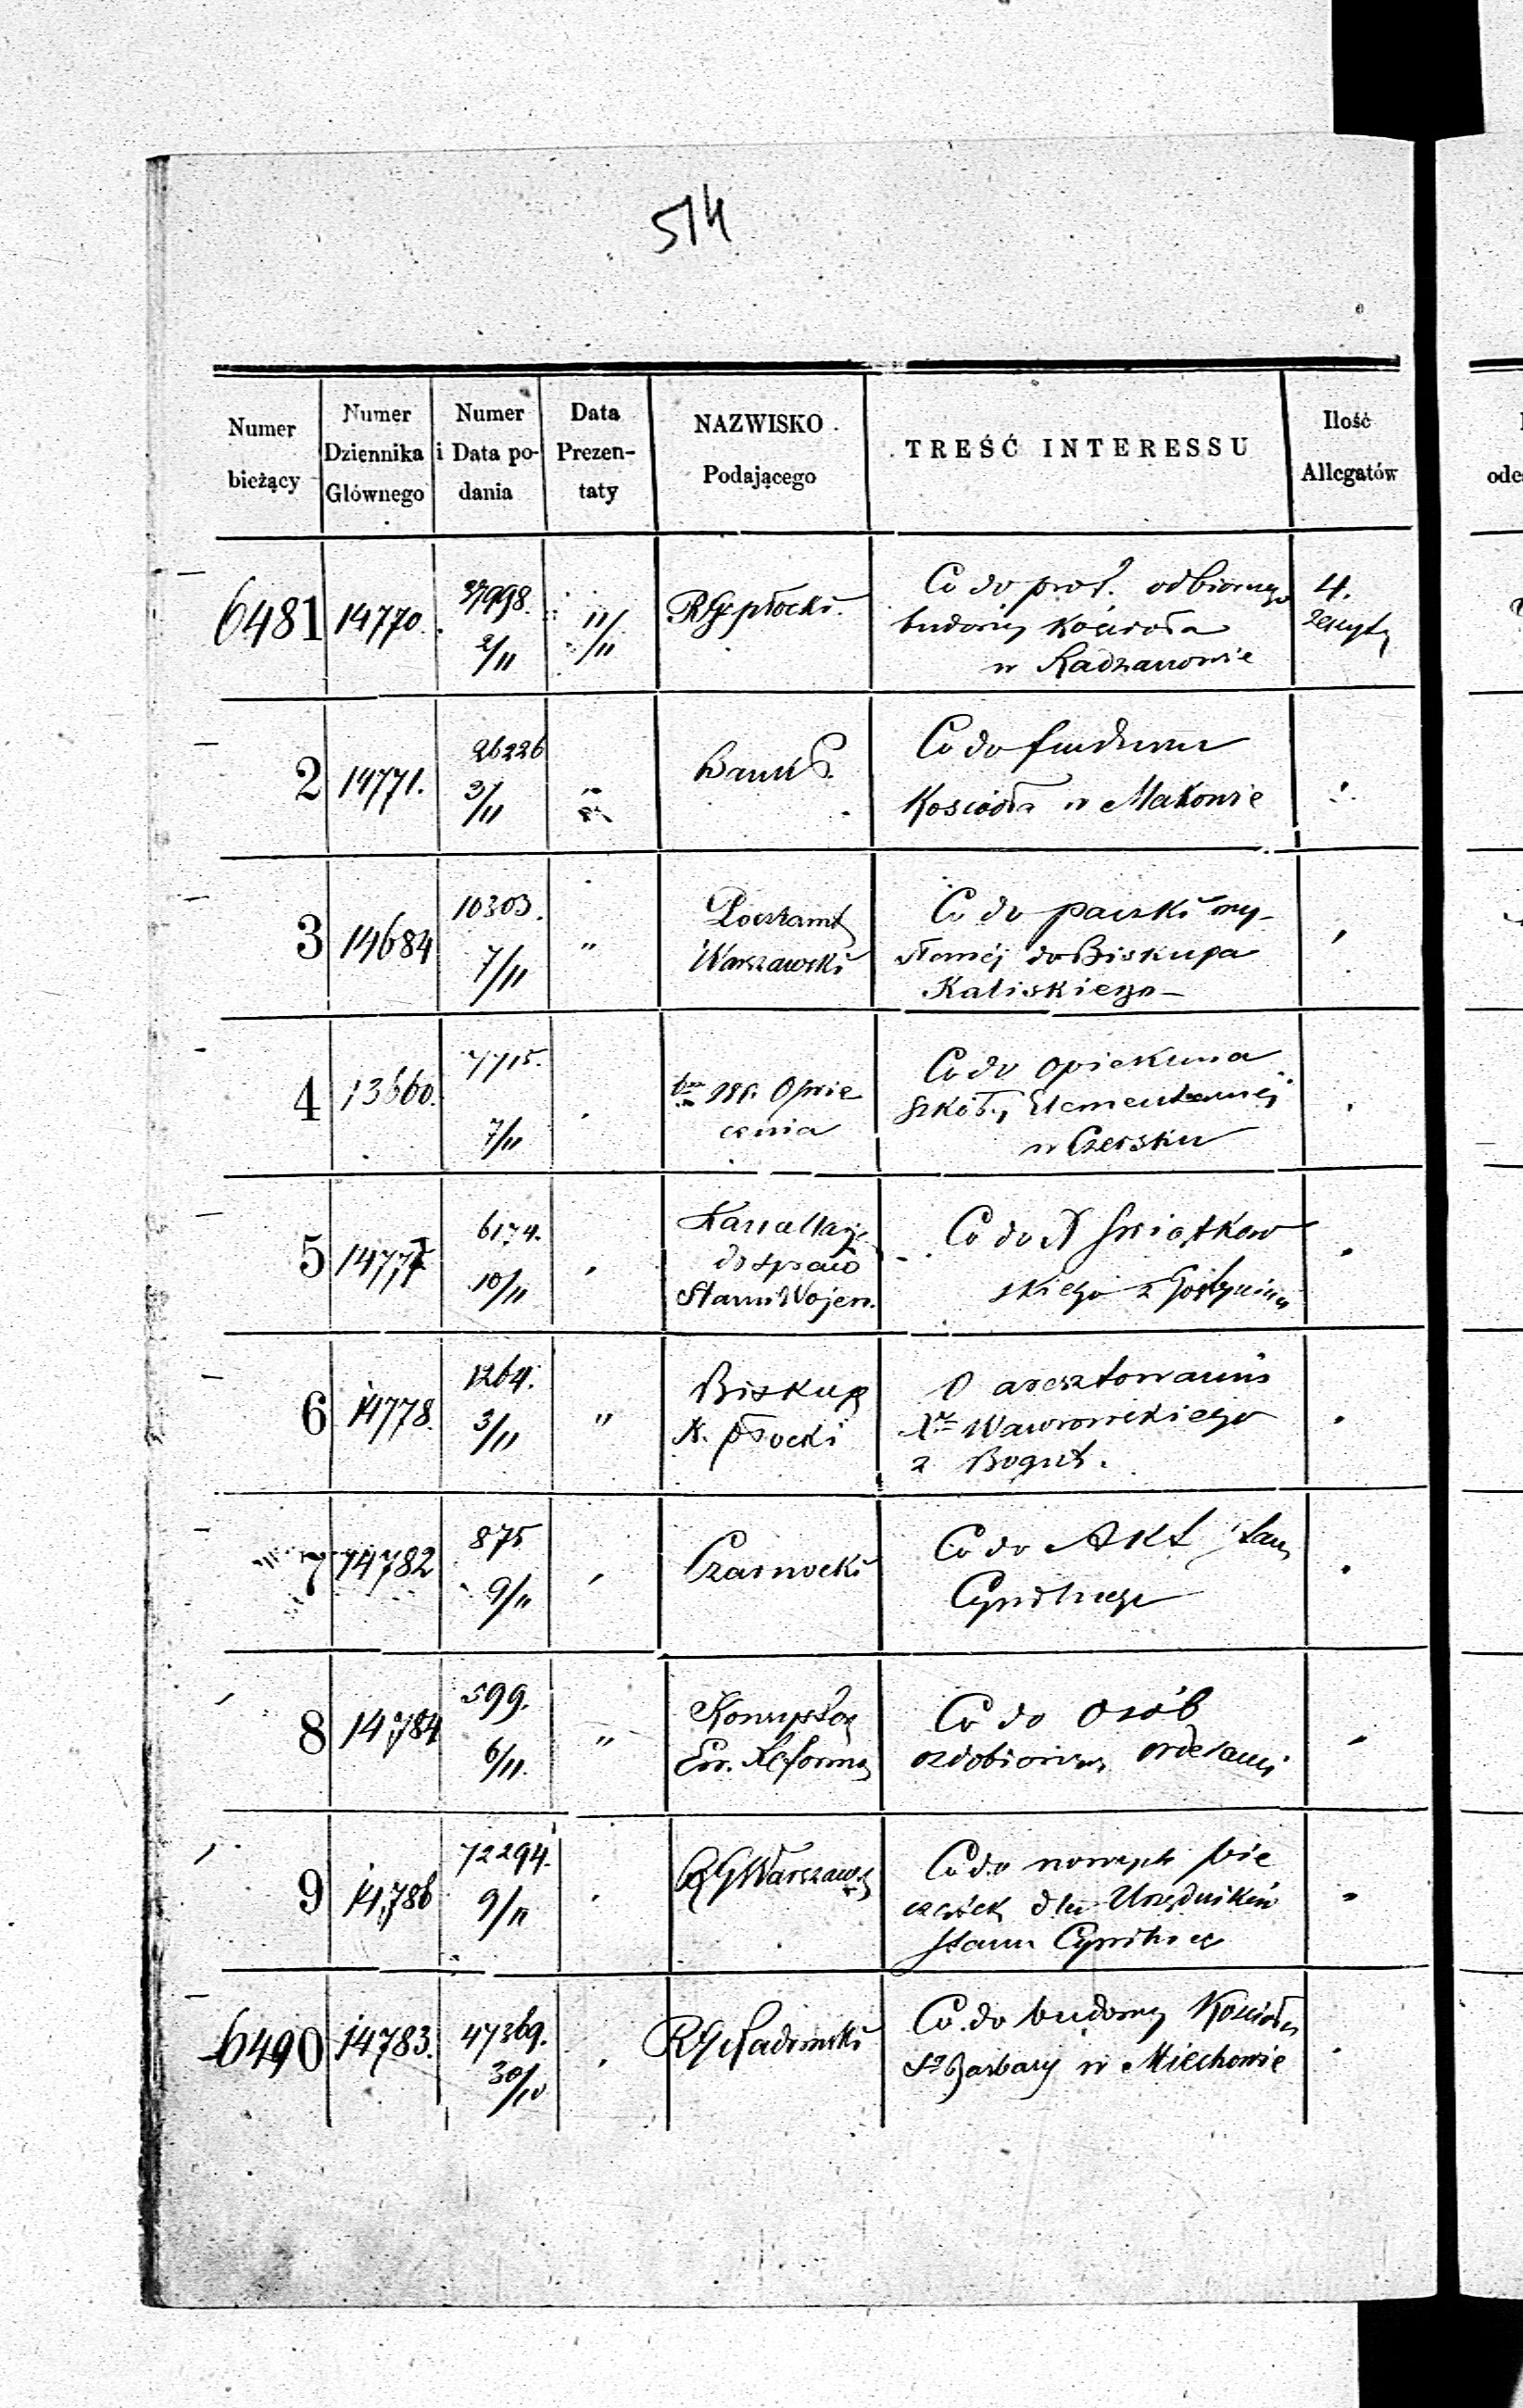 514
Numer bieżący | Numer Dziennika Głównego | Numer i Data podania | Data Prezentaty | NAZWISKO Podającego | TREŚĆ INTERESSU | Ilość Allegatów
6481 | 14770. | 37998. 2/11 | 11/11 | RG płocki. | Co do prot. odbiorczego
budowy Kościoła
w Radzanowie | 4. zeszyty
2 | 14771. | 26226 3/11 | " | Bank P. | Co do funduszu
Kościoła w Makowie
3 | 14684 | 10303. 7/11 | " | Pocztamt
Warszawski | Co do paczki wy-
słanej do Biskupa
Kaliskiego-
4 | 13660. | 7715. 7/11 | Oświe
cenia | Co do opiekuna
Szkoły Elementarnej
w Czersku
5 | 6174. 10/11 | do spraw
Stanu Wojen. | Co do X Swiątkow
skiego z Gostynina
6 | 14778. | 1264. 3/11 | " | Biskup
płocki | O aresztowaniu
Wawrowskiego
z Bogut.
7 | 14782 | 875 9/11 | Czarnocki | Co do Akt Stanu
Cywilnego
8 | 14784 | 599. 6/11 | " | Konsystorz
Ew. Reformo | Co do osób
ozdobionych orderami
9 | 14786 | 72294. 9/11 | RG Warszawski | Co do nowych pie
czątek dla Urzędników
Stanu Cywilnego
6490 | 14783. | 47369. 30/10 | RG Radomski | Co do budowy Kościoła
Sej Barbary w Miechowie